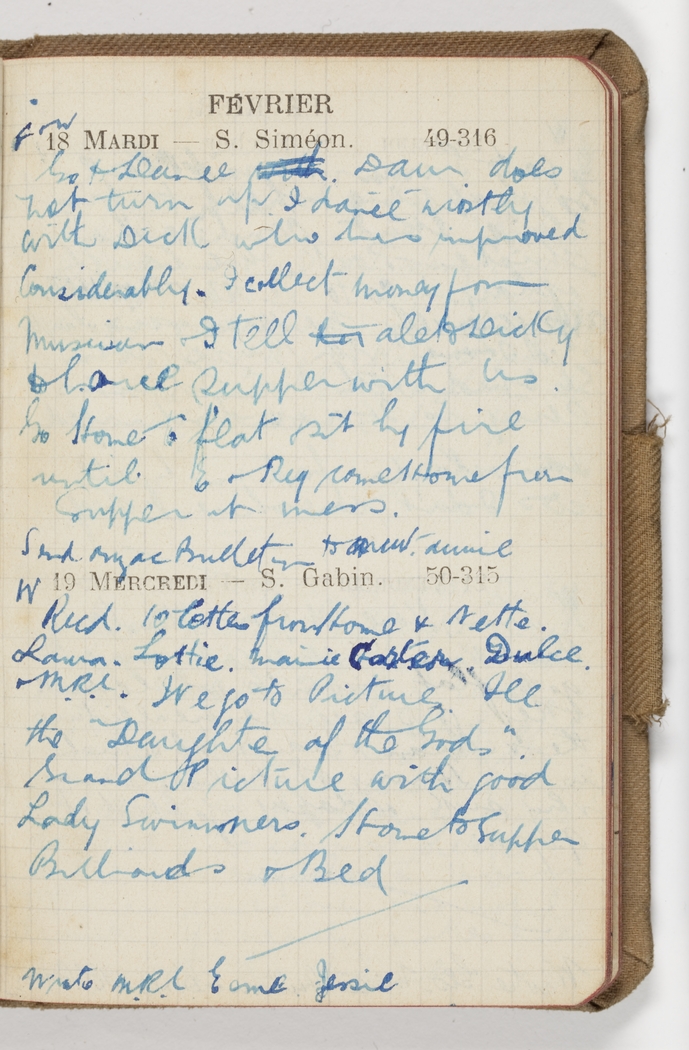 FÉVRIER
18 MARDI — S. Siméon. 49-316
Go to Dance with. Dawn does
not turn up. I dance mostly
with Dick who has improved
Considerably. I collect money from
Musician & I tell Dicky
to have supper with us.
Go Home to flat sit by fire
until E & Reg come Home from
supper at mess.
Send Anzac Bulletin to
19 MERCREDI — S. Gabin. 50-315
W
Recd. 10 letters from Home & Nette.
Laura. Lottie. Mainie Carter. Dulce.
& M.R.L. We go to Picture. See
the "Daughte of the Gods".
Grand Picture with good
Lady Swimmers. Home to Supper
Billiards & Bed
Wrote M.R.L Esme Jessie